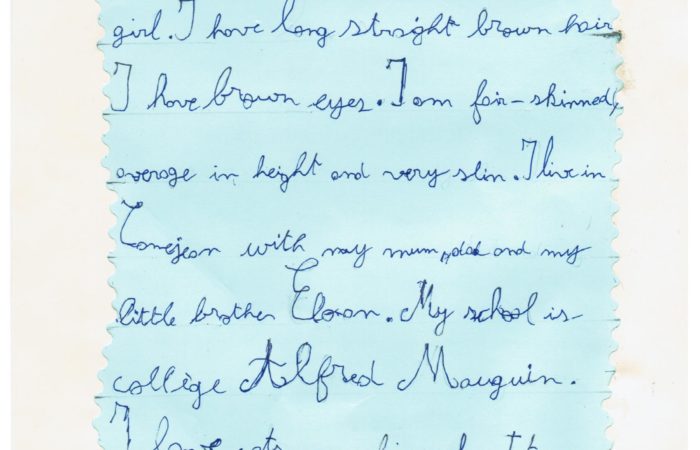 girl. I have long straight brown hair
I have brown eyes. I am fair-skinned,
average in height and very slin. I live in
with my mum, dad and my
little brother Elowan. My school is
collège Alfred Mauguin.
I have